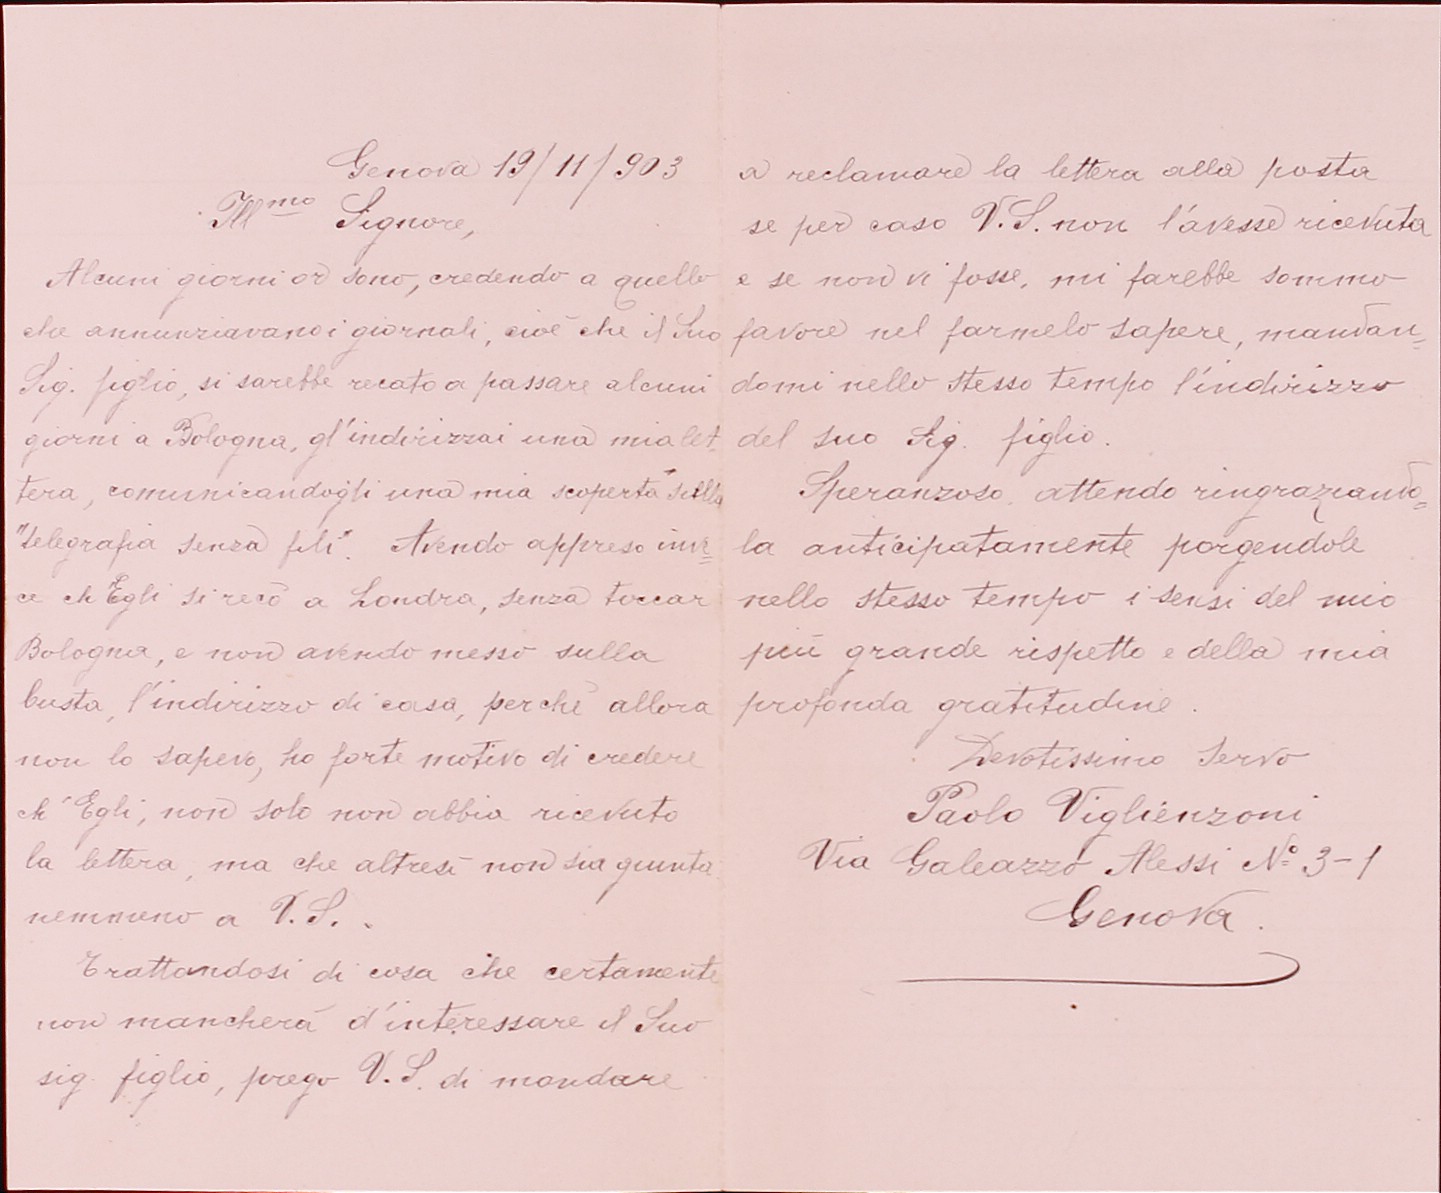 Genova 19/11/903
Ill.mo Signore,
Alcuni giorni or sono, credendo a quello
che annunziavano i giornali, cioè che il Suo
Sig. figlio, si sarebbe recato a passare alcuni
giorni a Bologna, gl'indirizzai una mia let=
tera, comunicandogli una mia scoperta "sulla
"telegrafia senza fili". Avendo appreso inve=
ce ch'Egli si recò a Londra, senza toccar
Bologna, e non avendo messo sulla
busta, l'indirizzo di casa, perchè allora
non lo sapevo, ho forte motivo di credere
ch'Egli, non solo non abbia ricevuto
la lettera, ma che altresì non sia giunta
nemmeno a V.S..
Trattandosi di cosa che certamente
non mancherà d'interessare il Suo
sig. figlio, prego V.S. di mandare
a reclamare la lettera alla posta
se per caso V.S. non l'avesse ricevuta
e se non vi fosse, mi farebbe sommo
favore nel farmelo sapere, mandan=
domi nello stesso tempo l'indirizzo
del suo Sig. figlio.
Speranzoso attendo ringraziando=
la anticipatamente porgendole
nello stesso tempo i sensi del mio
più grande rispetto e della mia
profonda gratitudine.
Devotissimo Servo
Paolo Viglienzoni
Via Galeazzo Alessi Nº 3-1
Genova.